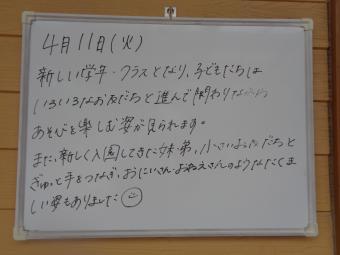 4月11日(火)
新しい学年・クラスとなり、子どもたちは
いろいろなお友だちと進んで関わりながら
あそびを楽しむ姿が見られます。
また、新しく入園してきた妹・弟、小さいお友だちと
ぎゅっと手をつなぎ、おにいさん・おねえさんのようなたくま
しい姿もありました